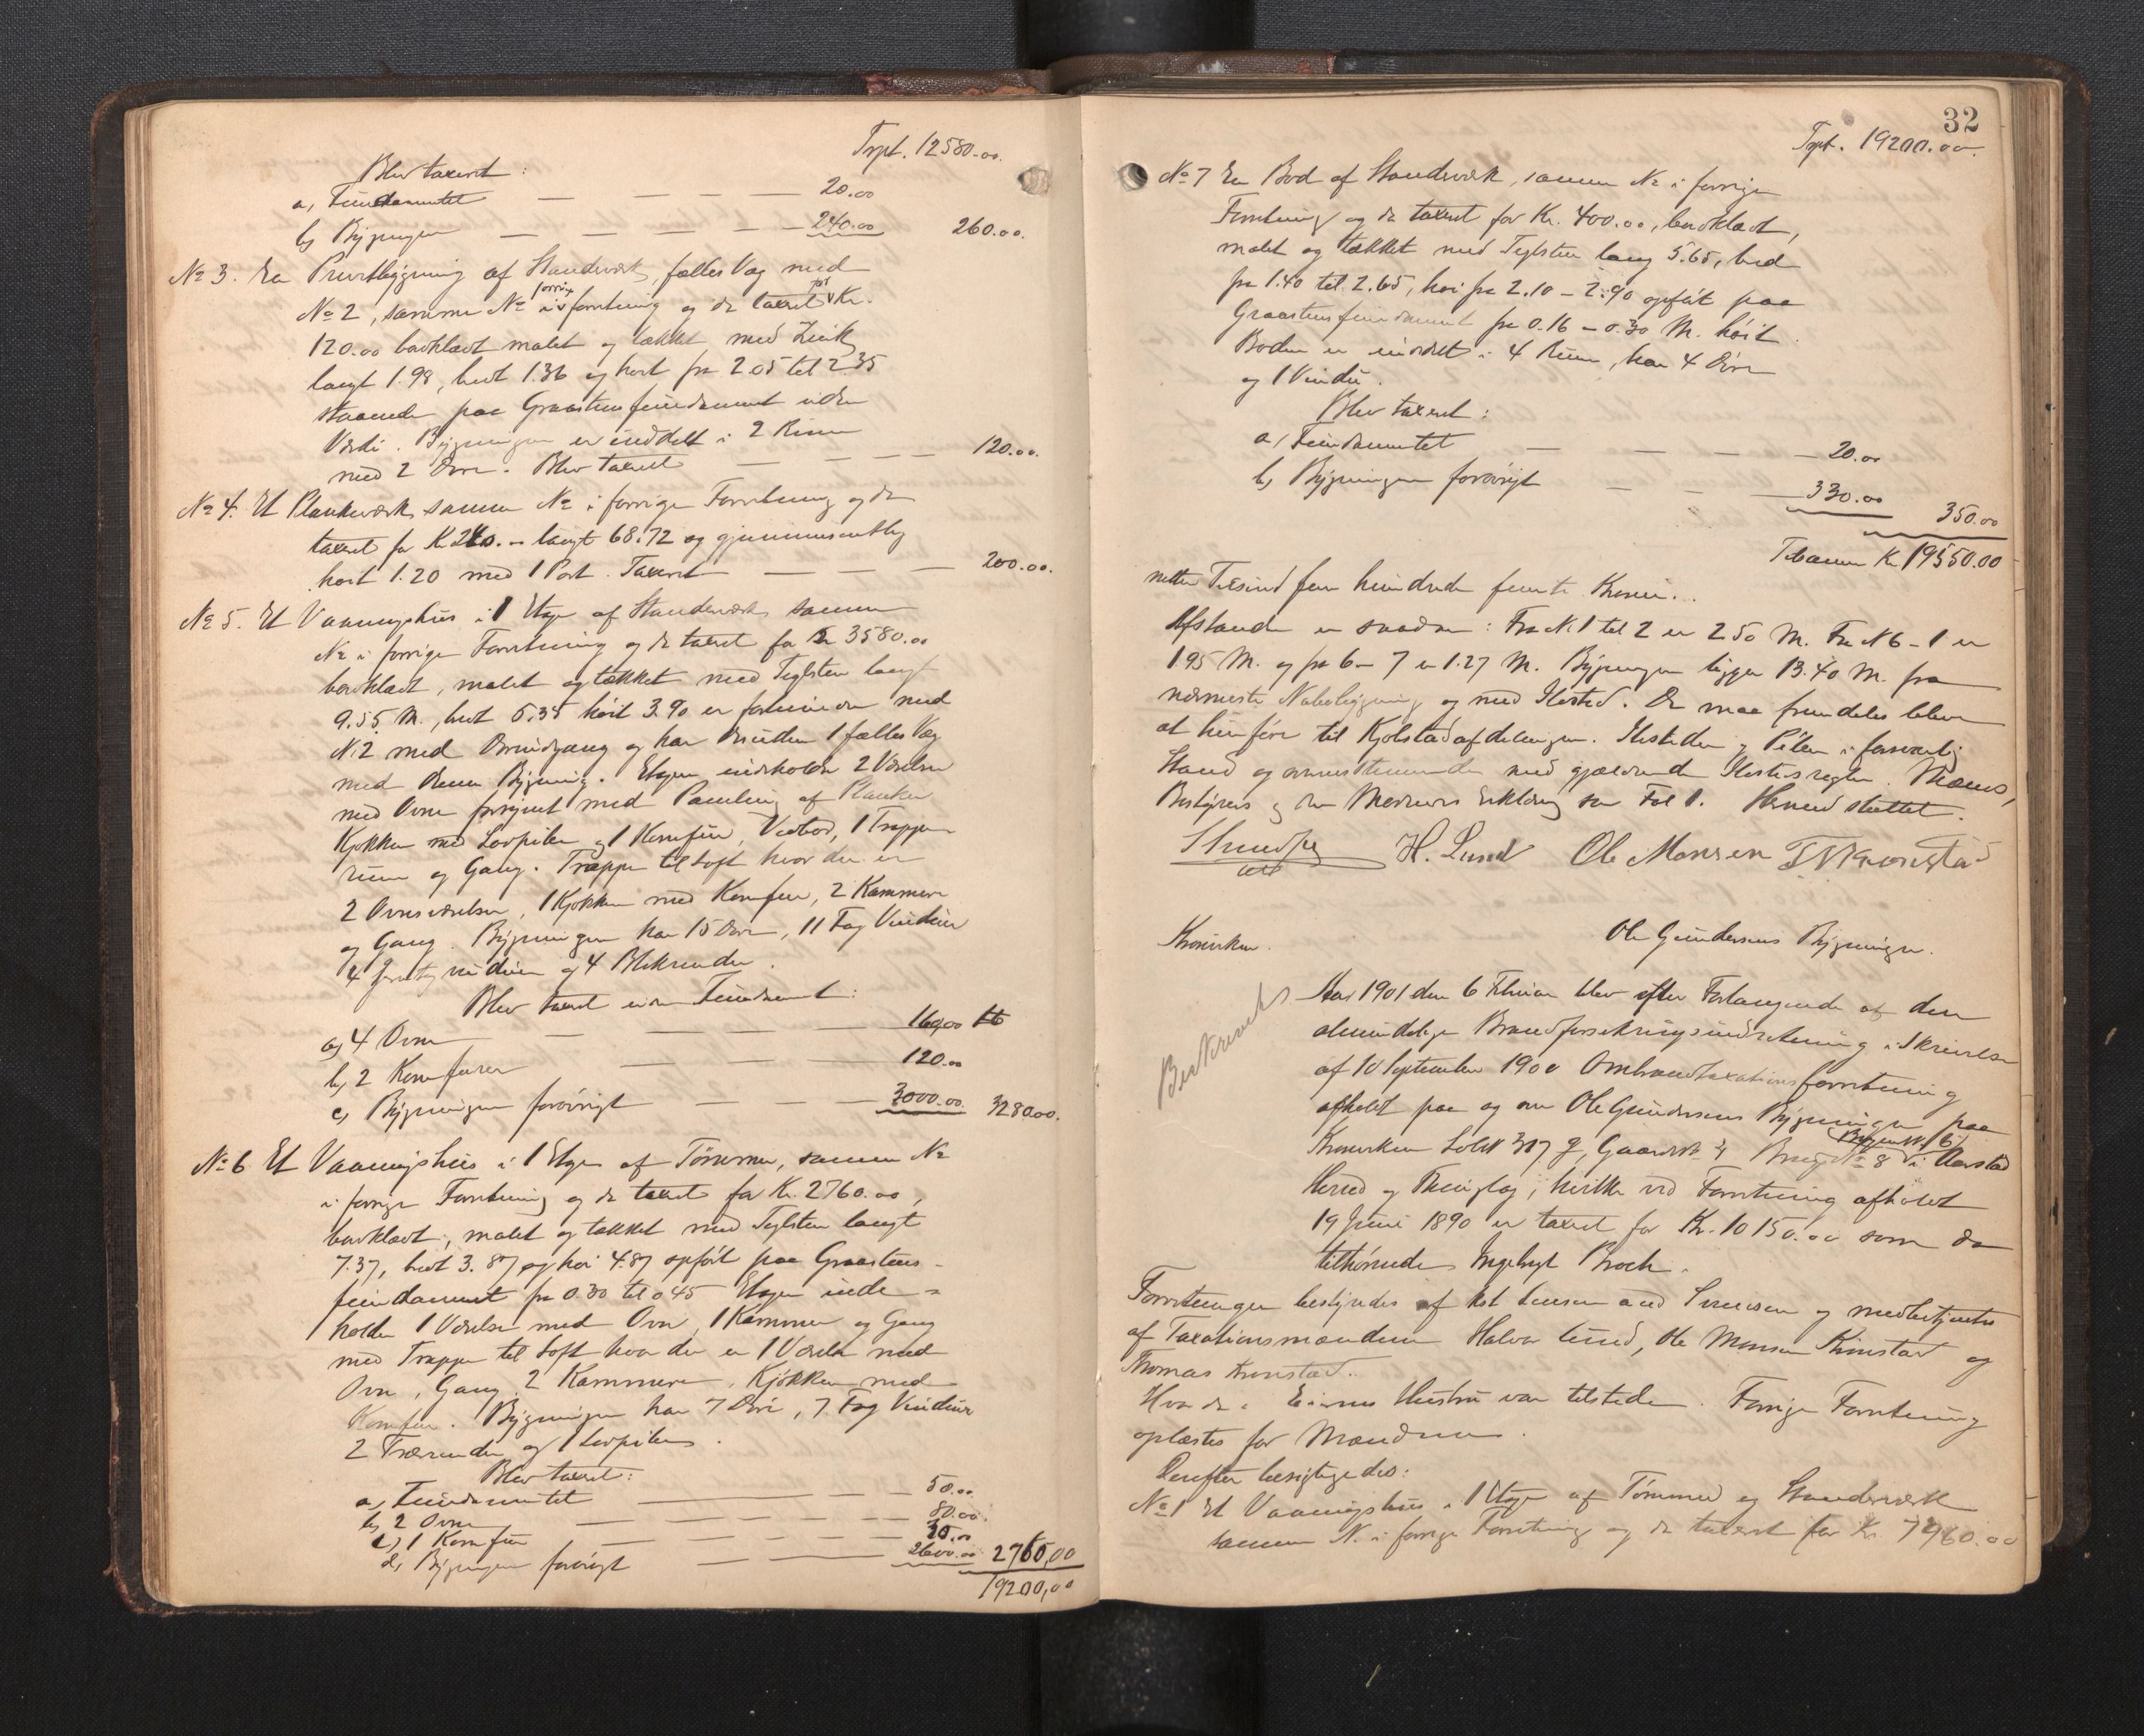 Trpt. 12580.00
Blev taxeret:
a, Fundamentet — — — 20.00
b, Bygningen — — — — 240.00 260.00.
No 3. En Privetbygning af Standværk, fælles Væg med
No 2, samme No i forrige forretning og da taxeret for Kr.
120.00 bordklædt malet og tækket med Zink
langt 1.98, bredt 1.36 og høit fra 2.05 til 2.35
staaende paa Graastensfundament uden
Værdi. Bygningen er inddelt i 2 Rum
med 2 Døre. Blev taxeret — — — 120.00.
No 4. Et Plankeværk samme No i forrige Forretning og da
taxeret for Kr. 240.00 langt 68.72 og gjennemsnitlig
høit 1.20 med 1 Port. Taxeret — — — 200.00.
No 5. Et Vaaningshus i 1 Etage af Standværk samme
No i forrige Forretning og da taxeret for Kr 3580.00
bordklædt, malet og tækket med Teglsten langt
9.55 M., bredt 6.35 høit 3.90 er forbunden med
No 2 med Omgang og har desuden 1 fælles Væg
med denne Bygning. Etagen indeholder 2 Værelser
med Ovne forsynet med Paneling af Planker
Kjøkken med Lovpibe og 1 Komfur, Vedbod, 1 Trappe-
rum og Gang. Trappe til Loft hvor der er
2 Ovnsværelser, 1 Kjøkken med Komfur, 2 Kammere
og Gang. Bygningen har 15 Døre, 11 Fag Vinduer
4 vinduer og 4 Blikrender.
Blev taxeret uden Fundament:
a, 4 Ovne — — — 160,00
b, 2 Komfurer — — — 120.00
c, Bygningen forøvrigt — — — 3000.00. 3280.00.
No 6 Et Vaaningshus i 1 Etage af Tømmer, samme No
i forrige Forretning og da taxeret for Kr. 2760.00,
bordklædt, malet og tækket med Teglsten langt
7.37, bredt 3.87 og høi 4.87 opført paa Graastens-
fundament fra 0.30 til 0.45 Etagen inde-
holder 1 Værelse med Ovn, 1 Kammer og Gang
med Trappe til Loft hvor der er 1 Værelse med
Ovn, Gang, 2 Kammere, Kjøkken med
Komfur. Bygningen har 7 Døre, 7 Fag Vinduer
2 Trærender og 1 Lovpibe.
Blev taxeret:
a, Fundamentet — 50.00
b, 2 Ovne — — — 80.00.
c, 1 Komfur — — — 30.00
d, Bygningen forøvrigt — — 2600.00 2760,00
19200,00
32
Trpt. 19200.00.
No 7 En Bod af Standværk, samme No i forrige
Forretning og da taxeret for Kr. 400.00, bordklædt,
malet og tækket med Teglsten lang 5.65, bred
fra 1.40 til 2.65, høi fra 2.10 – 2.90 opført paa
Graastensfundament fra 0.16 – 0.30 M. høit.
Boden er indredet i 4 Rum, har 4 Døre
og 1 Vindu.
Blev taxeret:
a, Fundamentet — — — — 20.00
b, Bygningen forøvrigt — — — 330.00 350.00
Tilsammen Kr 19550.00
nitten Tusind fem hundrede femti Kroner.
Afstanden er saadan: Fra No 1 til 2 er 2.50 M. Fra No 6 – 1 er
1.95 M. og fra 6 – 7 er 1.27 M. Bygningen ligger 13.40 M. fra
nærmeste Nabobygning og med Ildsted. De maa fremdeles blive
at henføre til Kjølstadafdelingen. Ildsteder og Piber i forsvarlig
Stand og overensstemmende med gjældende Ildstedsregler. Mænds,
Bestyrers og Erklæring se Fol 1. Hermed sluttet.
H. Lund Ole Monsen T. N. Kronstad
Kronviken. Ole Gundersens Bygninger.
Aar 1901 den 6 Februar blev efter Forlangende af den
almindelige Brandforsikringsindretning i Skrivelse
af 10 September 1900 Ombrandtaxationsforretning
afholdt paa og over Ole Gundersens Bygninger paa
Kronviken Løbe No 307 q, Gaards No 4 Brugs No 8 i Aarstad
Herred og Thinglag, hvilke ved Forretning afholdt
19 Juni 1890 er taxeret for Kr. 10150.00 som da
tilhørende Ingebrigt Brock.
Forretningen bestyredes af Lensmand Simonsen og medbetjentes
af Taxationsmændene Halvor Lund, Ole Monsen Kronstad og
Thomas Kronstad.
Hvorda Eierens Hustru var tilstede. Forrige Forretning
oplæstes for Mændene.
Derefter besigtigedes:
No 1 Et Vaaningshus i 1 Etage af Tømmer og Standværk
samme No i forrige Forretning og da taxeret for Kr. 7960.00